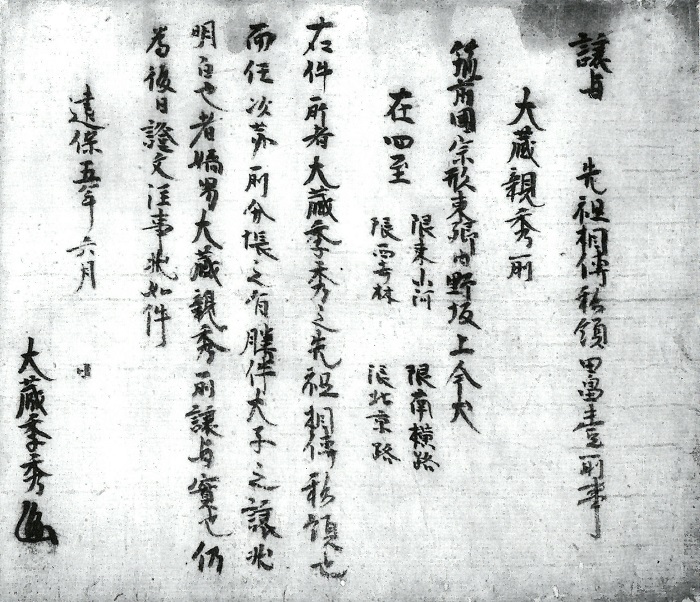 譲与 先祖相傳私領田畠壱所事
大蔵親秀所
筑前国宗形東郷内野坂上今犬
在四至
限東小河 限南横路
限西寺林 限北京路
右件所者大蔵季秀之先祖相傳私領也
而任次第 所分帳之 件 子之譲状
明白也者嫡男大蔵親秀所譲与實也仍
為後日證文注事状如件
建保五年六月 日
大蔵季秀